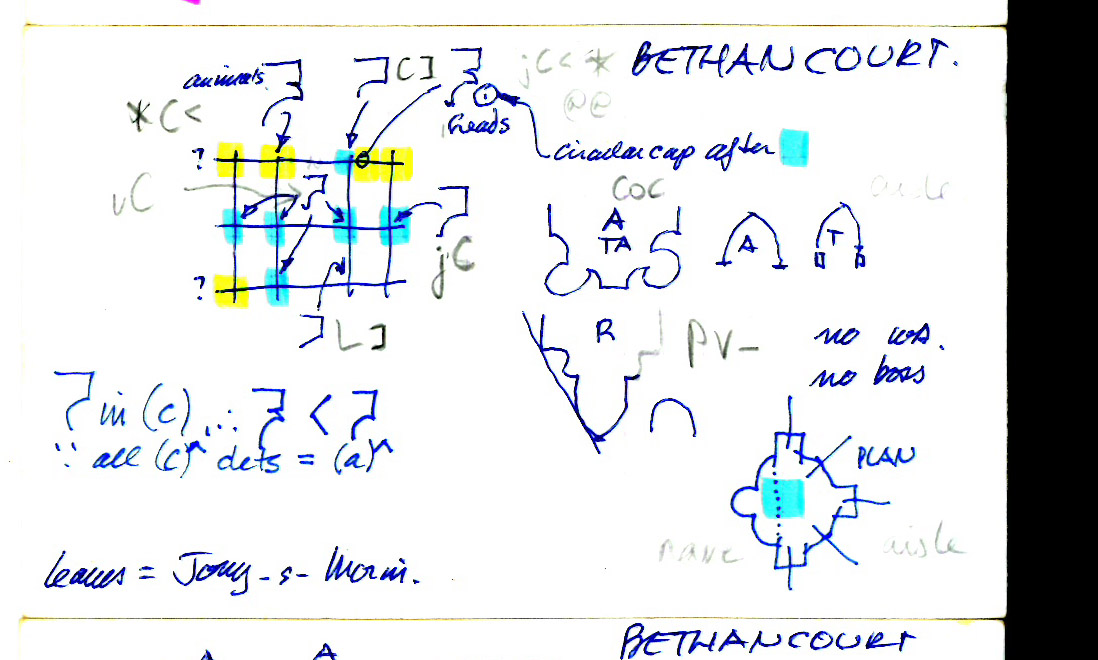 BETHANCOURT.
animals
C]
jC<*
@@
*C<
heads
circular cap after
?
vC
COC
aisle
A
TA
A
T
jC
?
L]
R
PV-
no
no boss
in (c) ∴ <
∵ all (c)^ dets = (a)^
PLAN
nave
aisle
leaves = Jouy-s-Morin.
BETHANCOURT
A
A